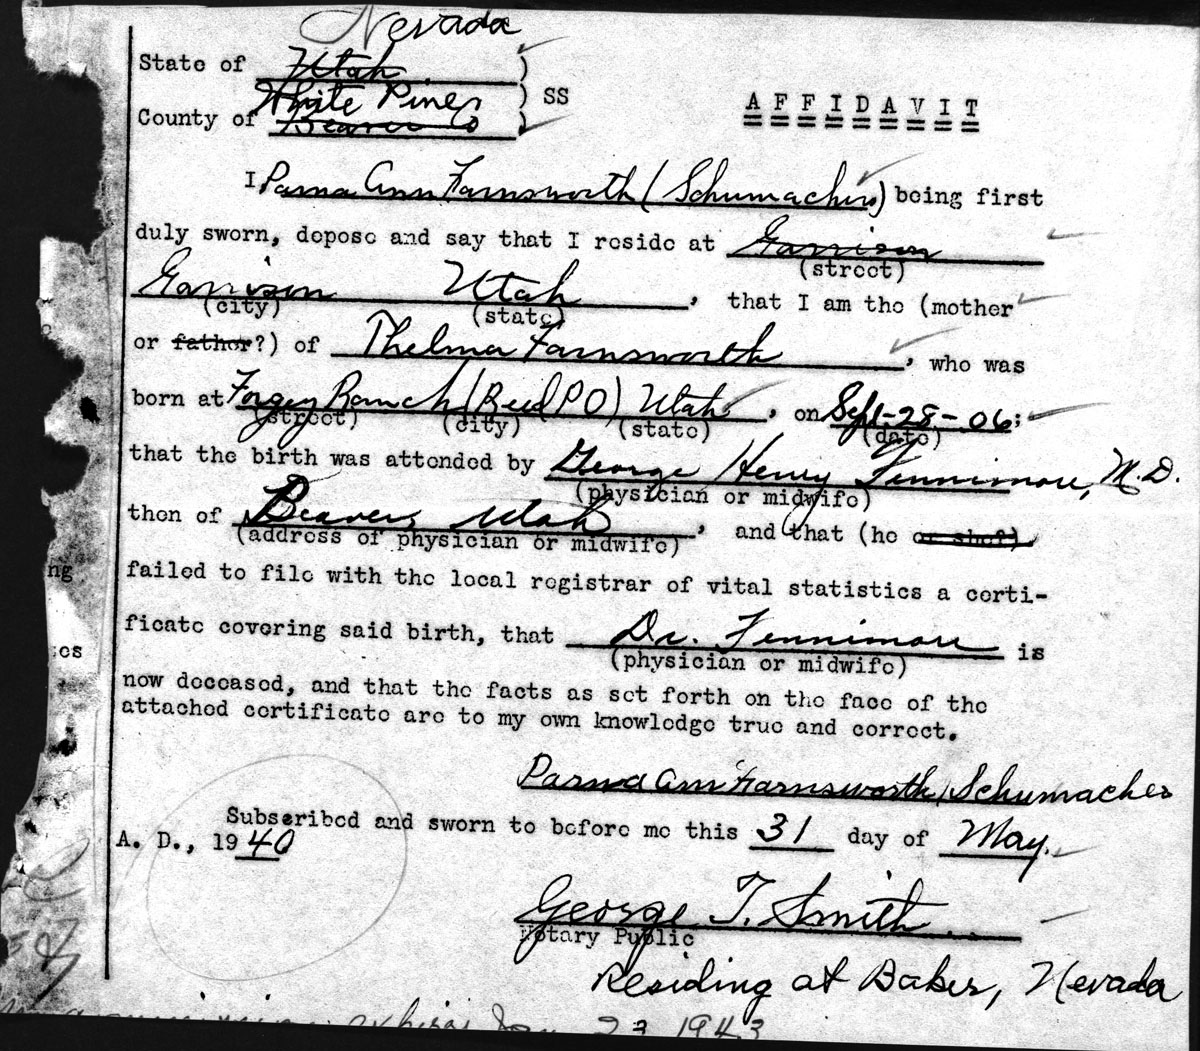 Nevada
State of Utah )
White Pine
County of Beaver Co ) SS
AFFIDAVIT
I Parna Ann Farnsworth (Schumacher) being first
duly sworn, depose and say that I reside at Garrison
(street)
Garrison Utah, that I am the (mother
(city) (state)
or father?) of Thelma Farnsworth, who was
born at Forgey Ranch (Reed PO) Utah, on Sept-28-06;
(street) (city) (state) (date)
that the birth was attended by George Henry Fennimore, M.D.
(physician or midwife)
then of Beaver, Utah, and that (he or she?)
(address of physician or midwife)
ng
failed to file with the local registrar of vital statistics a certi-
ficate covering said birth, that Dr. Fennimore is
(physician or midwife)
es
now deceased, and that the facts as set forth on the face of the
attached certificate are to my own knowledge true and correct.
Parna Ann Farnsworth Schumacher
Subscribed and sworn to before me this 31 day of May.
A. D., 1940
George T. Smith
Notary Public
Residing at Baker, Nevada
expires Jan 23 1943